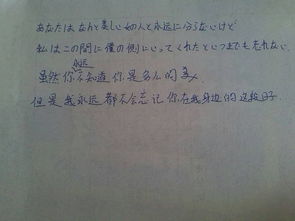 あなたはなんと美しい如人と永远に分らないけど
私はこの間に僕の側にいってくれたといつまでも忘れない.
虽然你永远不知道你是多么的美.
但是我永远都不会忘记你在我身边的这段日子.